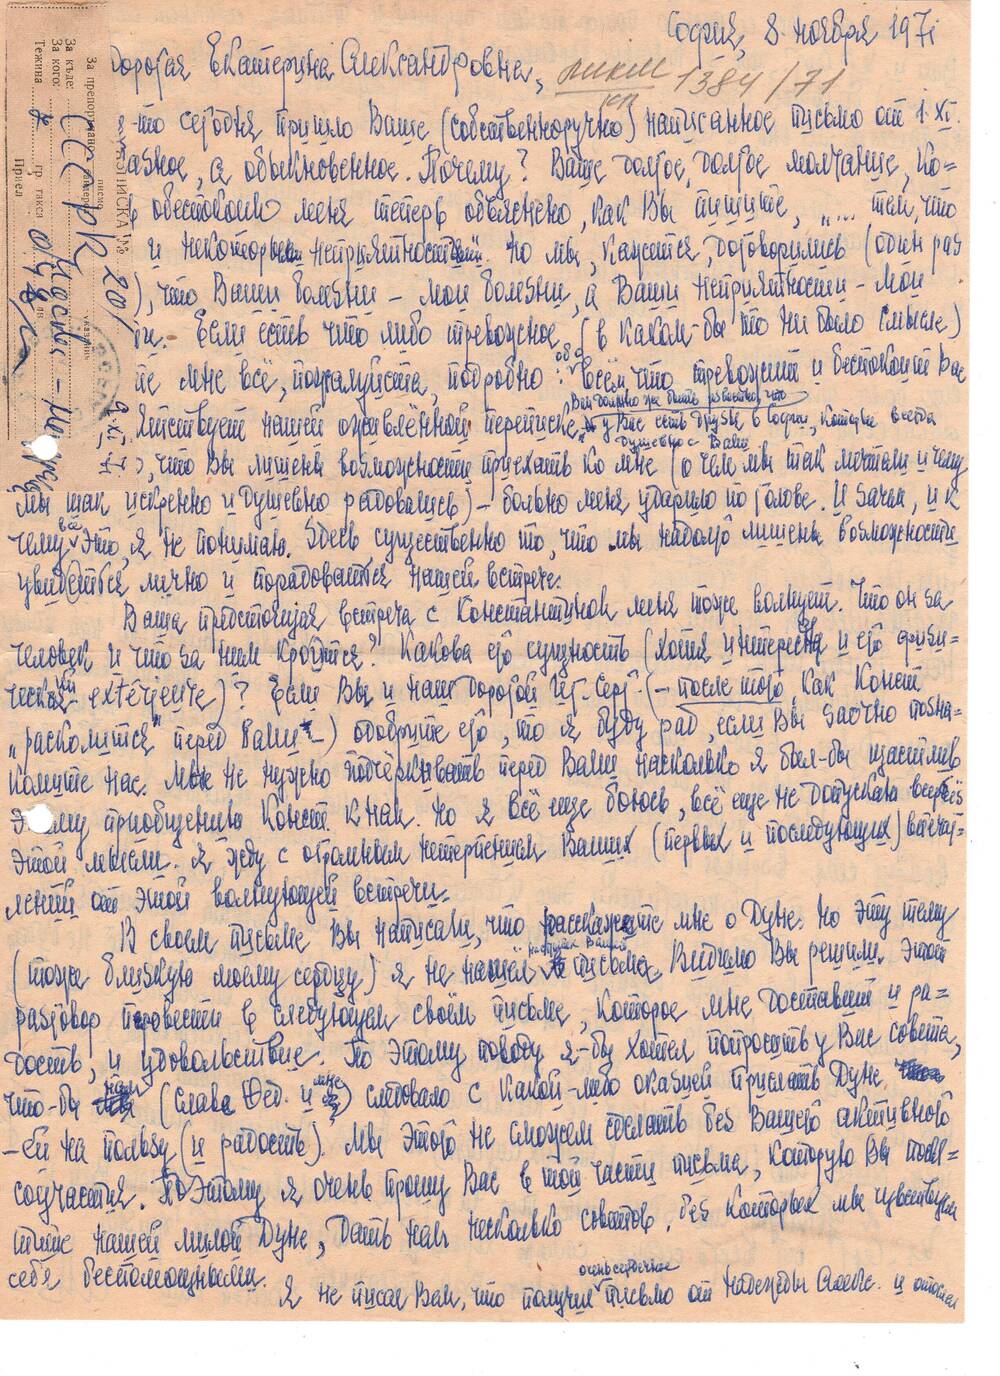 София, 8. ноября 1971
Дорогая Екатерина Александровна,
1384/71
кп
-то сегодня пришло Ваше (собственноручно) написанное письмо от 1.XI.
азное, а обыкновенное. Почему? Ваше долгое, долгое молчание, ко=
обеспокоило меня теперь объяснено, как Вы пишите, „... тем, что
и некоторыми неприятностями". Но мы, кажется, договорились (один раз
), что Ваши болезни – мои болезни, а Ваши неприятности – мои
Если есть что либо тревожное (в каком-бы то ни было смысле)
те мне всё, пожалуйста, подробно: обо всём, что тревожит и беспокоит Вас
Вам должно же быть известно, что
ятствует нашей оживлённой переписке, у Вас есть друзья в Софии, которые всегда
душевно с Вами
, что Вы лишены возможности приехать ко мне (о чем мы так мечтали и чему
мы так искренно и душевно радовались) – больно меня ударило по голове. И зачем, и к
чему всё это, я не понимаю. Здесь существенно то, что мы надолго лишены возможности
увидеться лично и порадоваться нашей встрече.
Ваша предстоящая встреча с Константином меня тоже волнует. Что он за
человек и что за ним кроется? Какова его сущность (хотя интересна и его физи=
ческая exterieure)? Если Вы и наш дорогой Иг. Серг. (– после того, как Конст
„расколится" перед Вами –) одобрите его, то я буду рад, если Вы заочно позна=
комите нас. Мне не нужно подчёркивать перед Вами насколько я был-бы щастлив
этому приобщению Конст. к нам. Но я всё еще боюсь, всё еще не допускаю всерьёз
этой мысли. Я жду с огромным нетерпением Ваших (первых и последующих) впечат=
лений от этой волнующей встречи.
В своем письме Вы написали, что расскажете мне о Дуне. Но эту тему
(тоже близкую моему сердцу) я не нашёл в Вашем письме. Видимо Вы решили этот
разговор провести в следующем своём письме, которое мне доставит и ра=
дость, и удовольствие. По этому поводу я-бы хотел попросить у Вас совета,
что-бы нам (Слава Фед. и мне) следовало с какой-либо оказией прислать Дуне
– ей на пользу (и радость). Мы этого не сможем сделать без Вашего активного
соучастия. Поэтому я очень прошу Вас в той части письма, которую Вы посвя=
тите нашей милой Дуне, дать нам несколько советов, без которых мы чувствуем
себя беспомощными.
очень сердечное
Я не писал Вам, что получил письмо от Надежды Алекс. и
За препоръчано
писмо
РАЗПИСКА №
За къде: СССР
За кого:
Тежина
гр. такса
лв
Приел